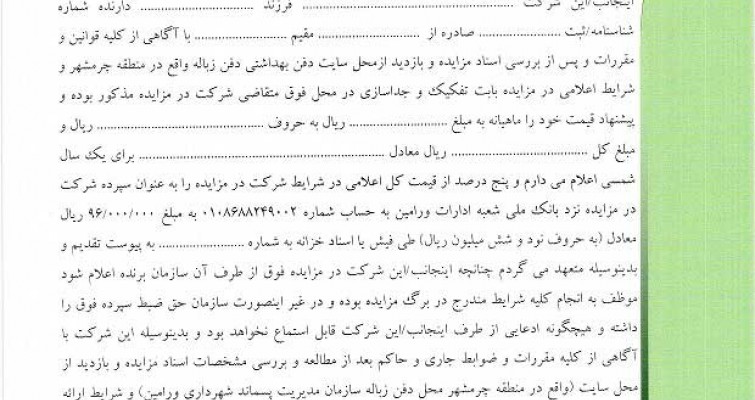 اینجانب/این شرکت .................................... فرزند .............................. دارنده شماره
شناسنامه/ثبت .................... صادره از .................... مقیم .................... با آگاهی از کلیه قوانین و
مقررات و پس از بررسی اسناد مزایده و بازدید ازمحل سایت دفن بهداشتی دفن زباله واقع در منطقه چرمشهر و
شرایط اعلامی در مزایده بابت تفکیک و جداسازی در محل فوق متقاضی شرکت در مزایده مذکور بوده و
پیشنهاد قیمت خود را ماهیانه به مبلغ .............................. ریال به حروف .............................. ریال و
مبلغ کل .............................. ریال معادل .................................... برای یک سال
شمسی اعلام می دارم و پنج درصد از قیمت کل اعلامی در شرایط شرکت در مزایده را به عنوان سپرده شرکت
در مزایده نزد بانک ملی شعبه ادارات ورامین به حساب شماره ۰۱۰۸۶۸۸۲۴۹۰۰۲ به مبلغ ۹۶/۰۰۰/۰۰۰ ریال
معادل (به حروف نود و شش میلیون ریال) طی فیش یا اسناد خزانه به شماره .................... به پیوست تقدیم و
بدینوسیله متعهد می گردم چنانچه اینجانب/این شرکت در مزایده فوق از طرف آن سازمان برنده اعلام شود
موظف به انجام کلیه شرایط مندرج در برگ مزایده بوده و در غیر اینصورت سازمان حق ضبط سپرده فوق را
داشته و هیچگونه ادعایی از طرف اینجانب/این شرکت قابل استماع نخواهد بود و بدینوسیله این شرکت با
آگاهی از کلیه مقررات و ضوابط جاری و حاکم بعد از مطالعه و بررسی مشخصات اسناد مزایده و بازدید از
محل سایت (واقع در منطقه چرمشهر محل دفن زباله سازمان مدیریت پسماند شهرداری ورامین) و شرایط ارائه